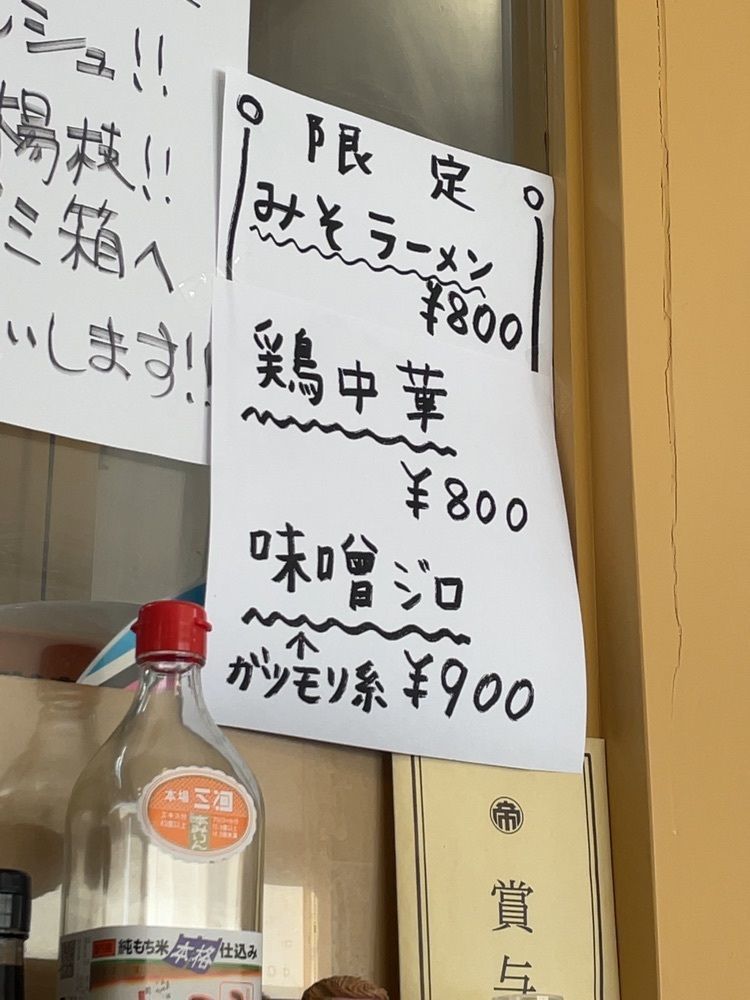 シュ!!
楊枝!!
ミ箱へ
いします!!
限定
みそラーメン
¥800
鶏中華
¥800
味噌ジロ
↑
ガツモリ系 ¥900
本場 三河
本みりん
純もち米 本格 仕込み
帝
賞与